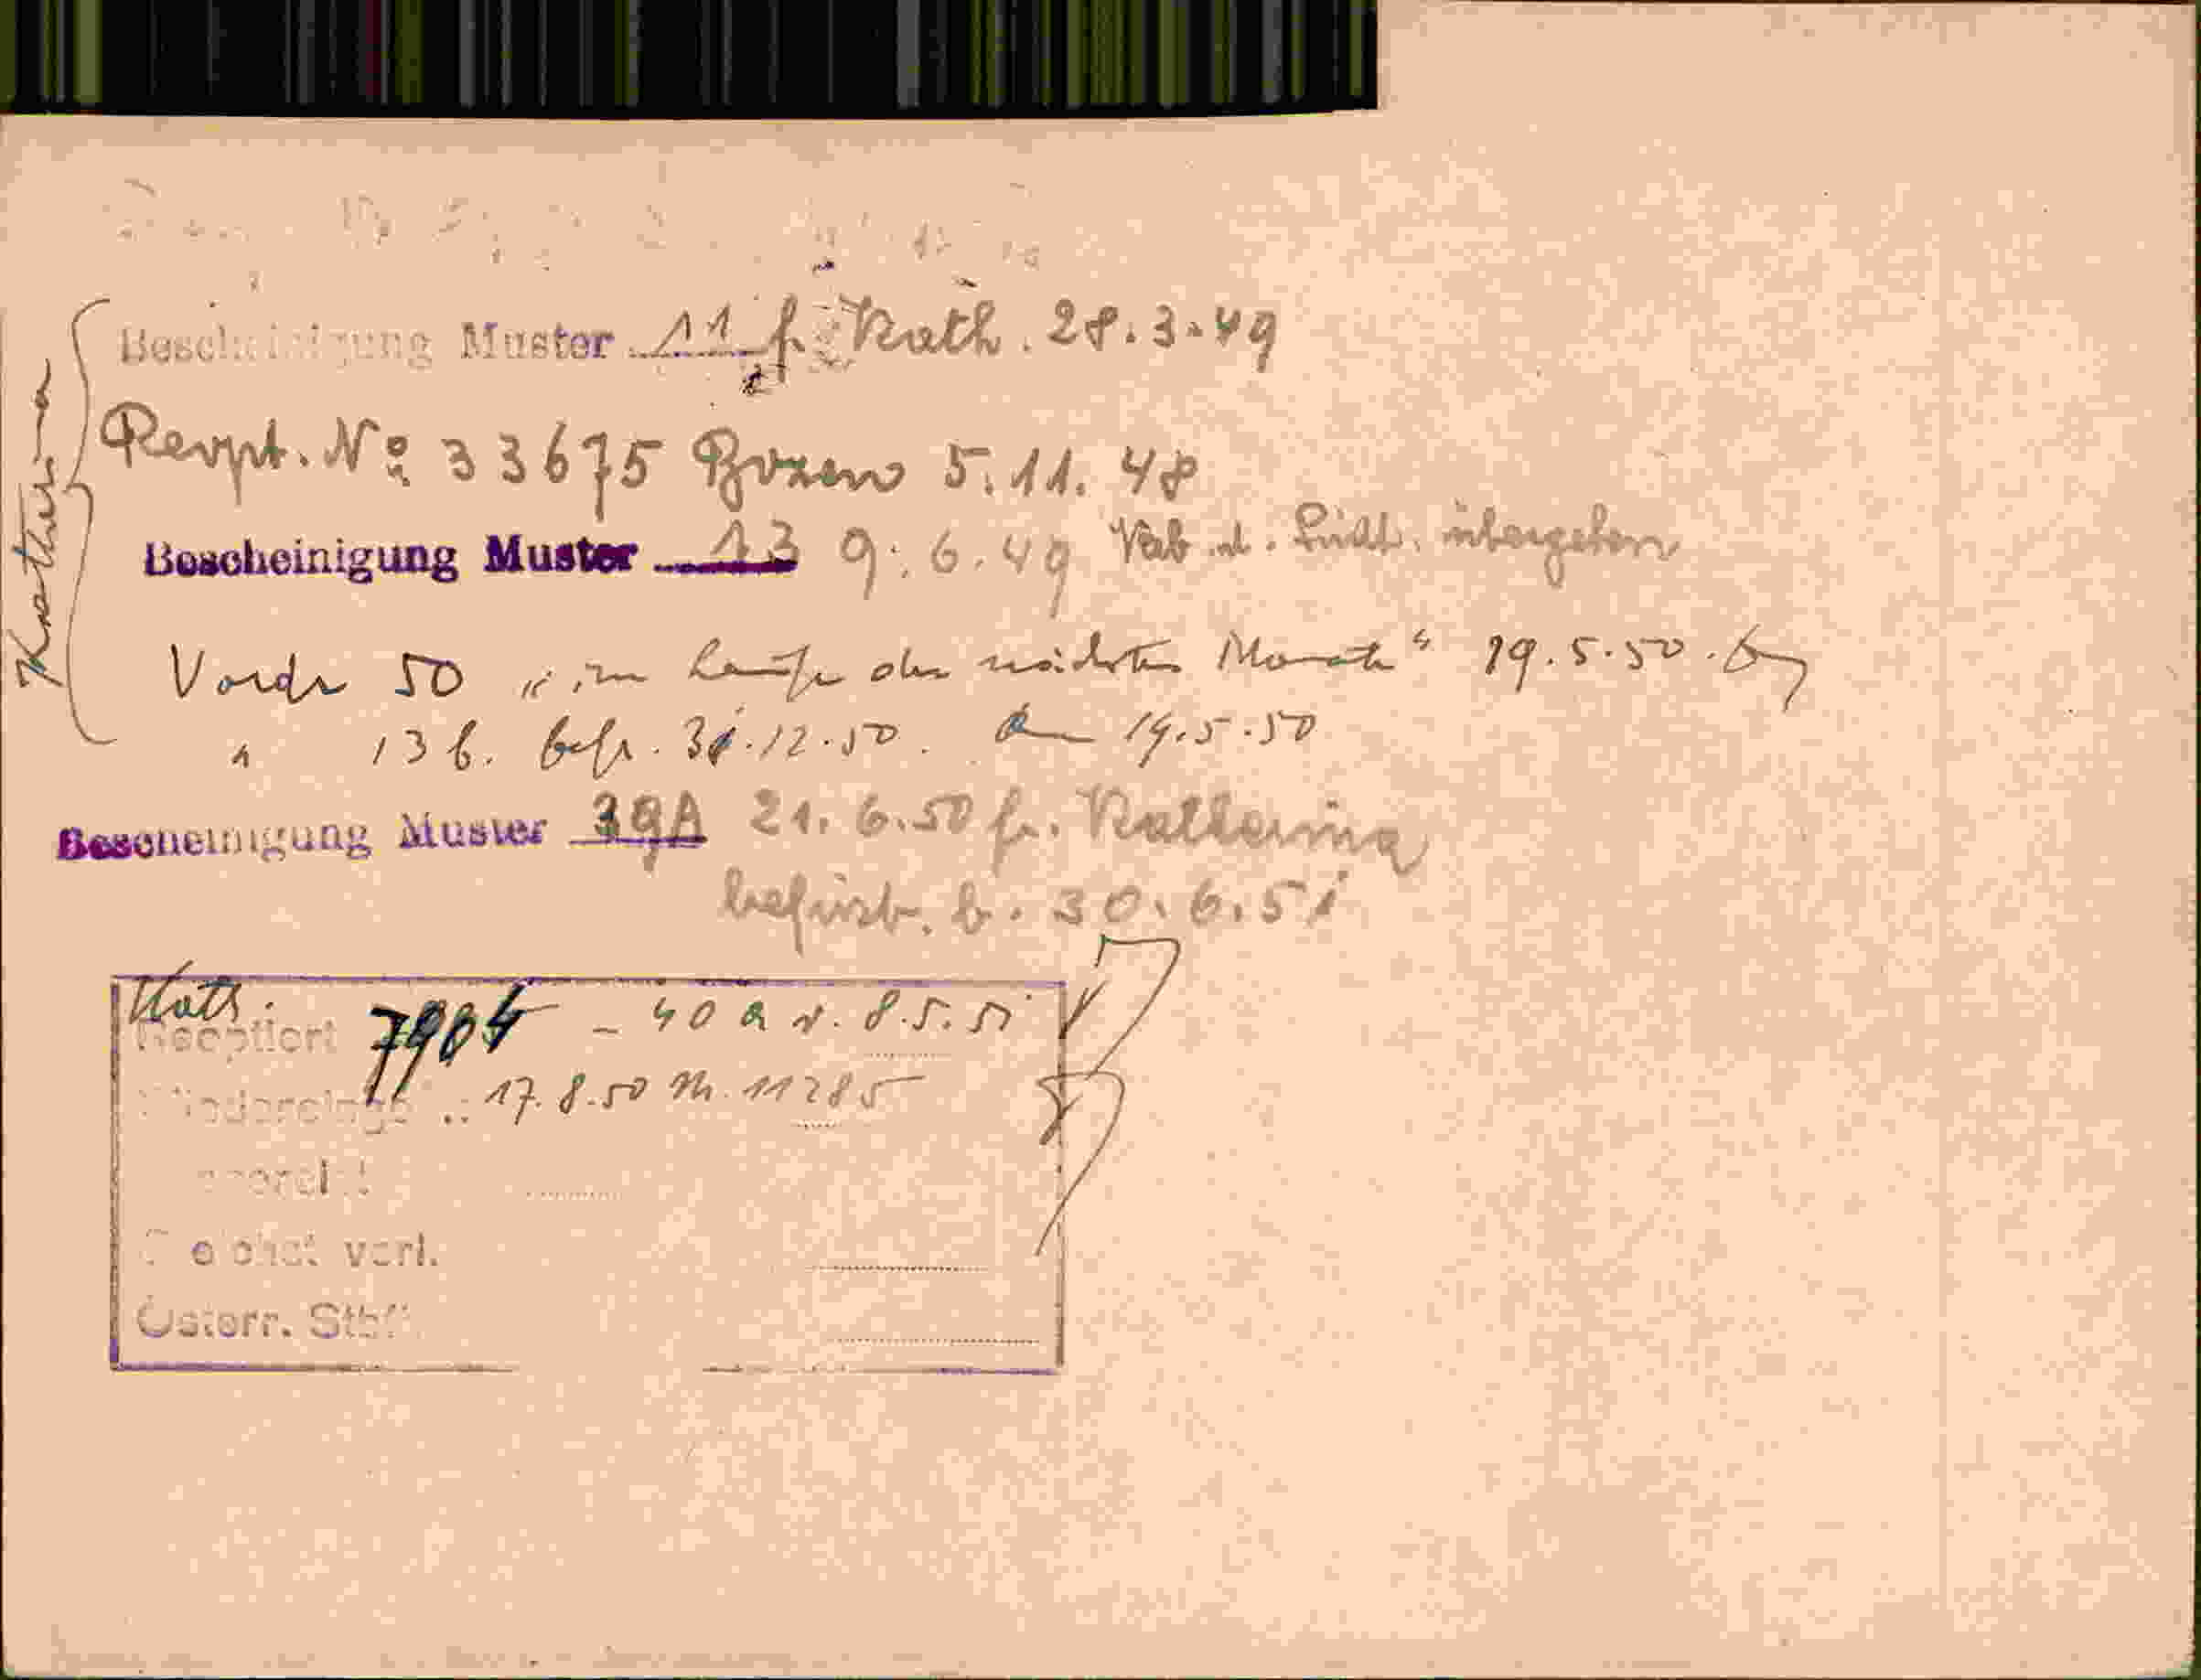 Katharina
Bescheinigung Muster 11 f. Kath. 28.3.49
Rept. Nº 33675 Bozen 5.11.48
Bescheinigung Muster 13 9.6.49 übergeben
Vordr 50 „im Laufe der nächsten Monate“ 19.5.50.
" 13 b. befr. 31.12.50. 19.5.50
Bescheinigung Muster 39A 21.6.50 f. Katharina
befrist. b. 30.6.51
Kath.
Reoptiert 7984 – 40 a v. 8.5.51
17.8.50 Nr. 11285
verl.
Österr. Stb